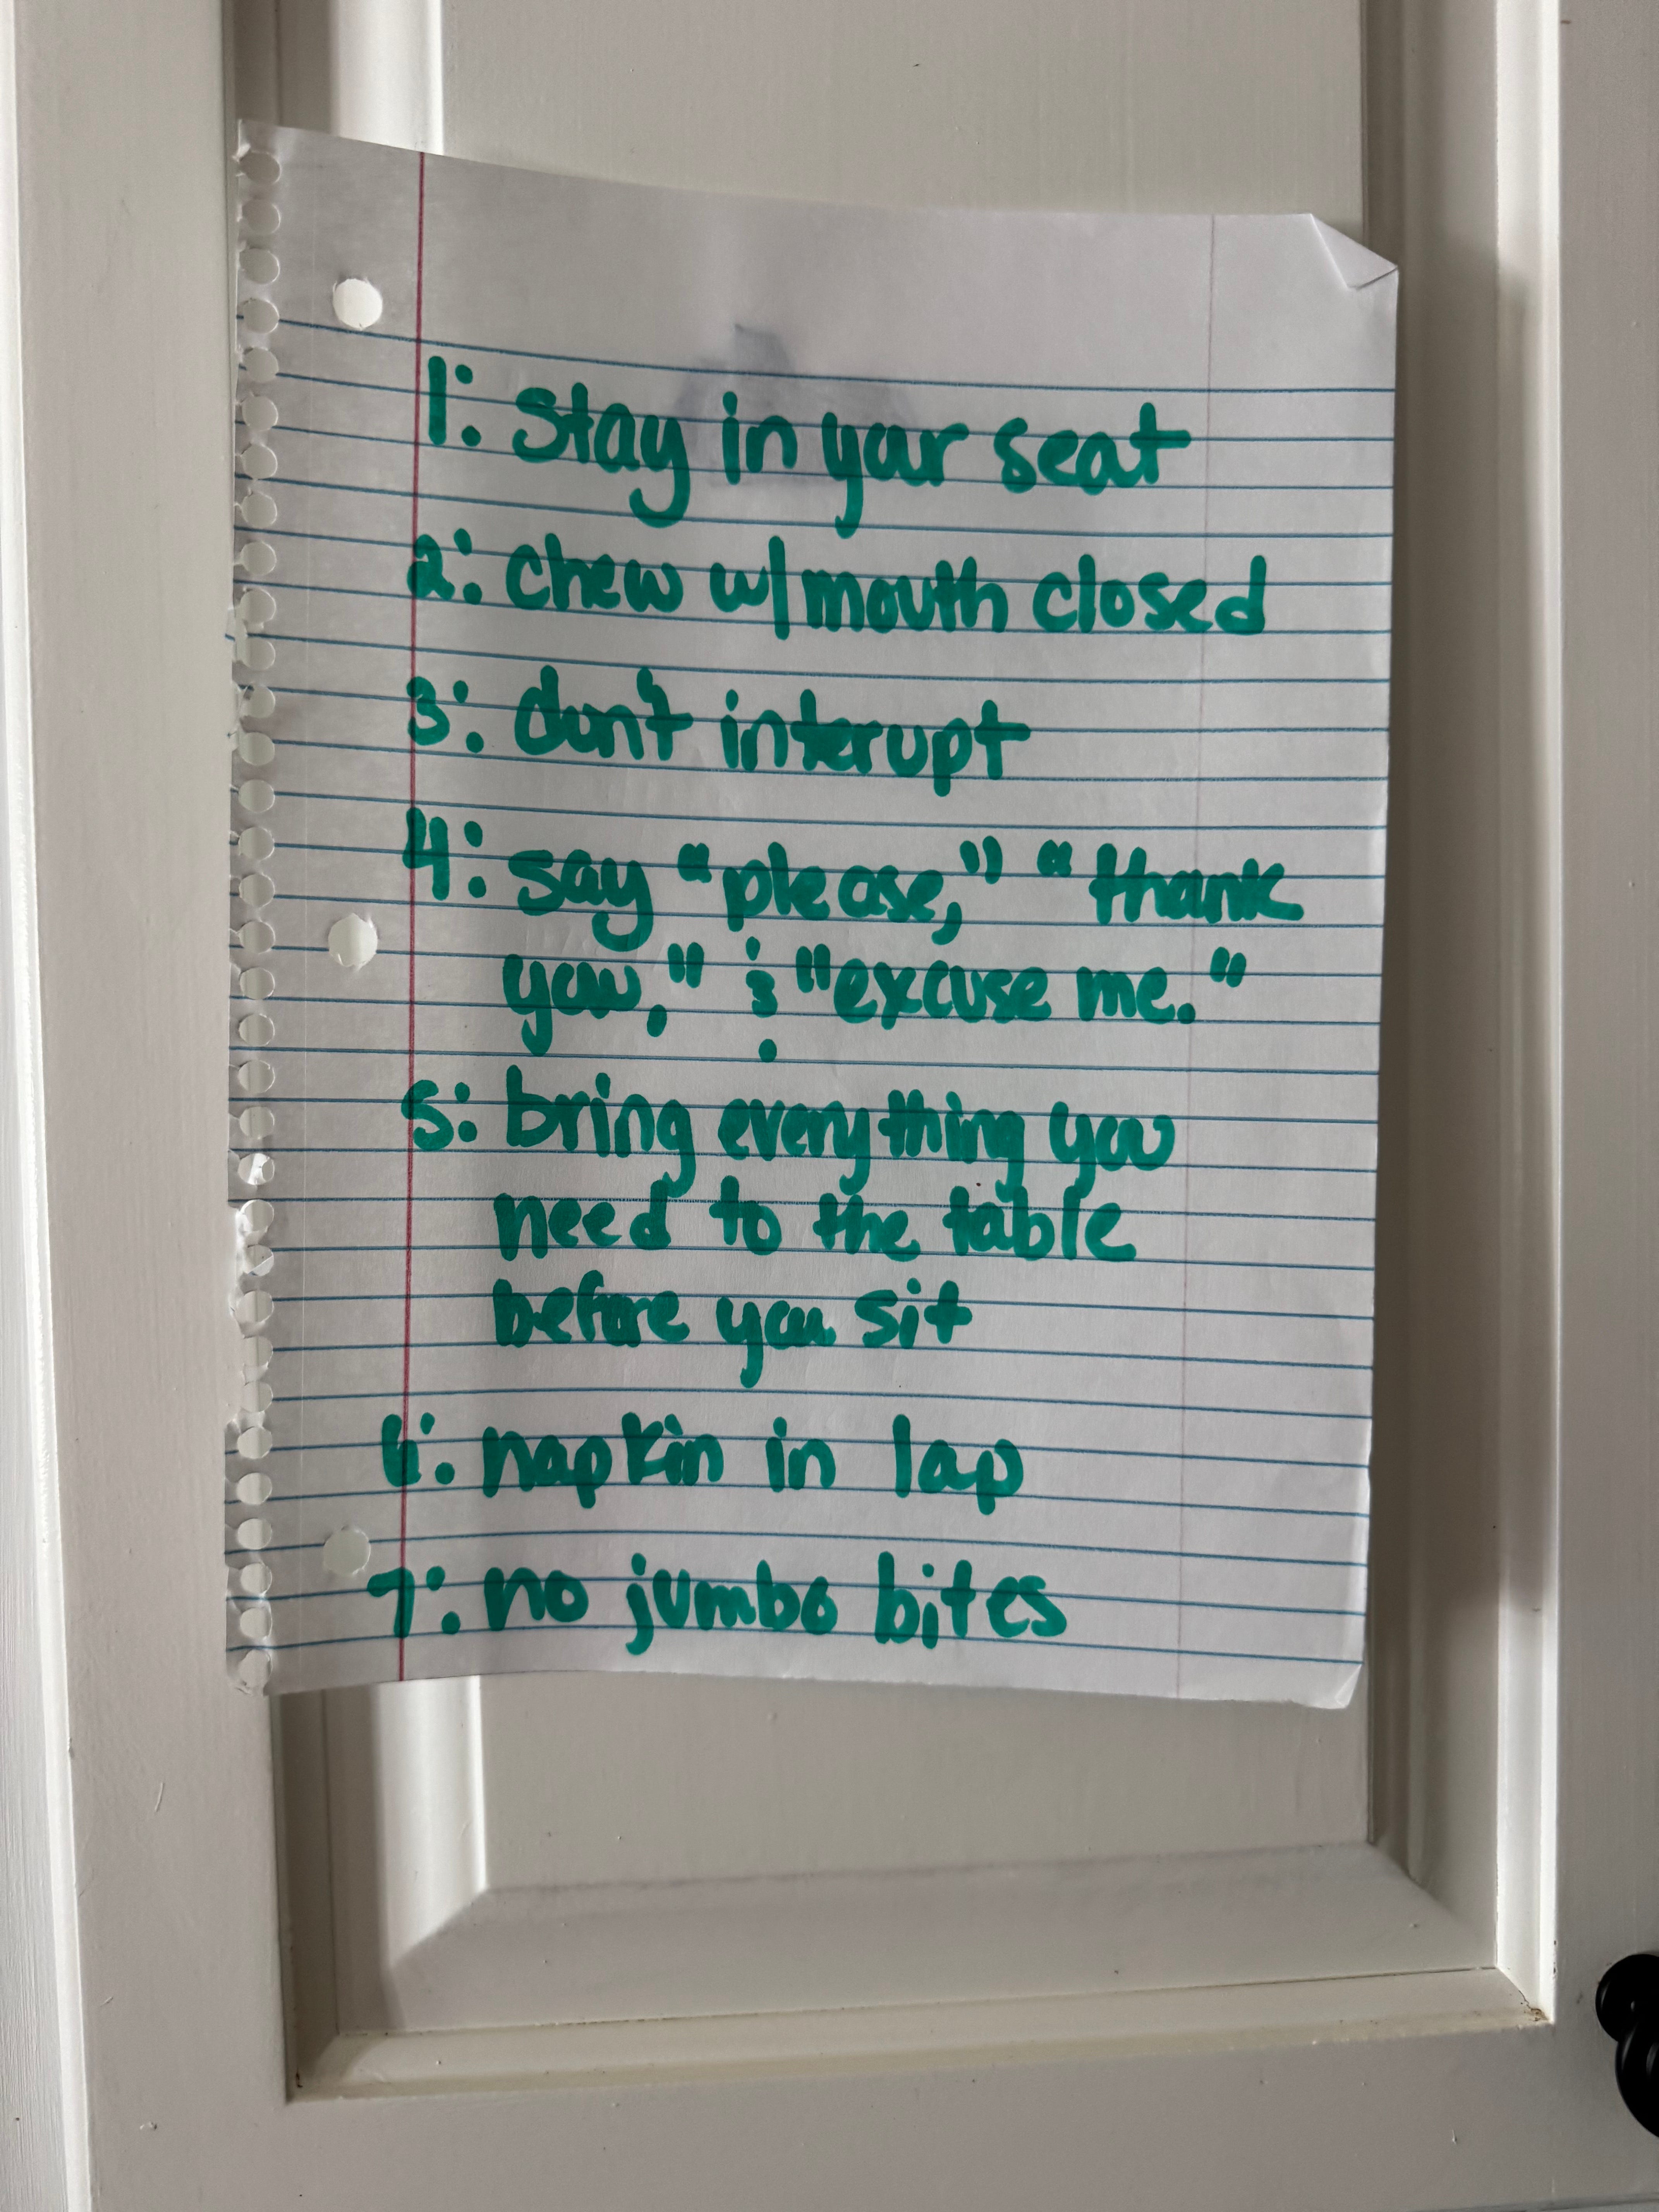 1: Stay in your seat
2: chew w/ mouth closed
3: don't interupt
4: say "please," "thank
you," & "excuse me."
5: bring everything you
need to the table
before you sit
6: napkin in lap
7: no jumbo bites